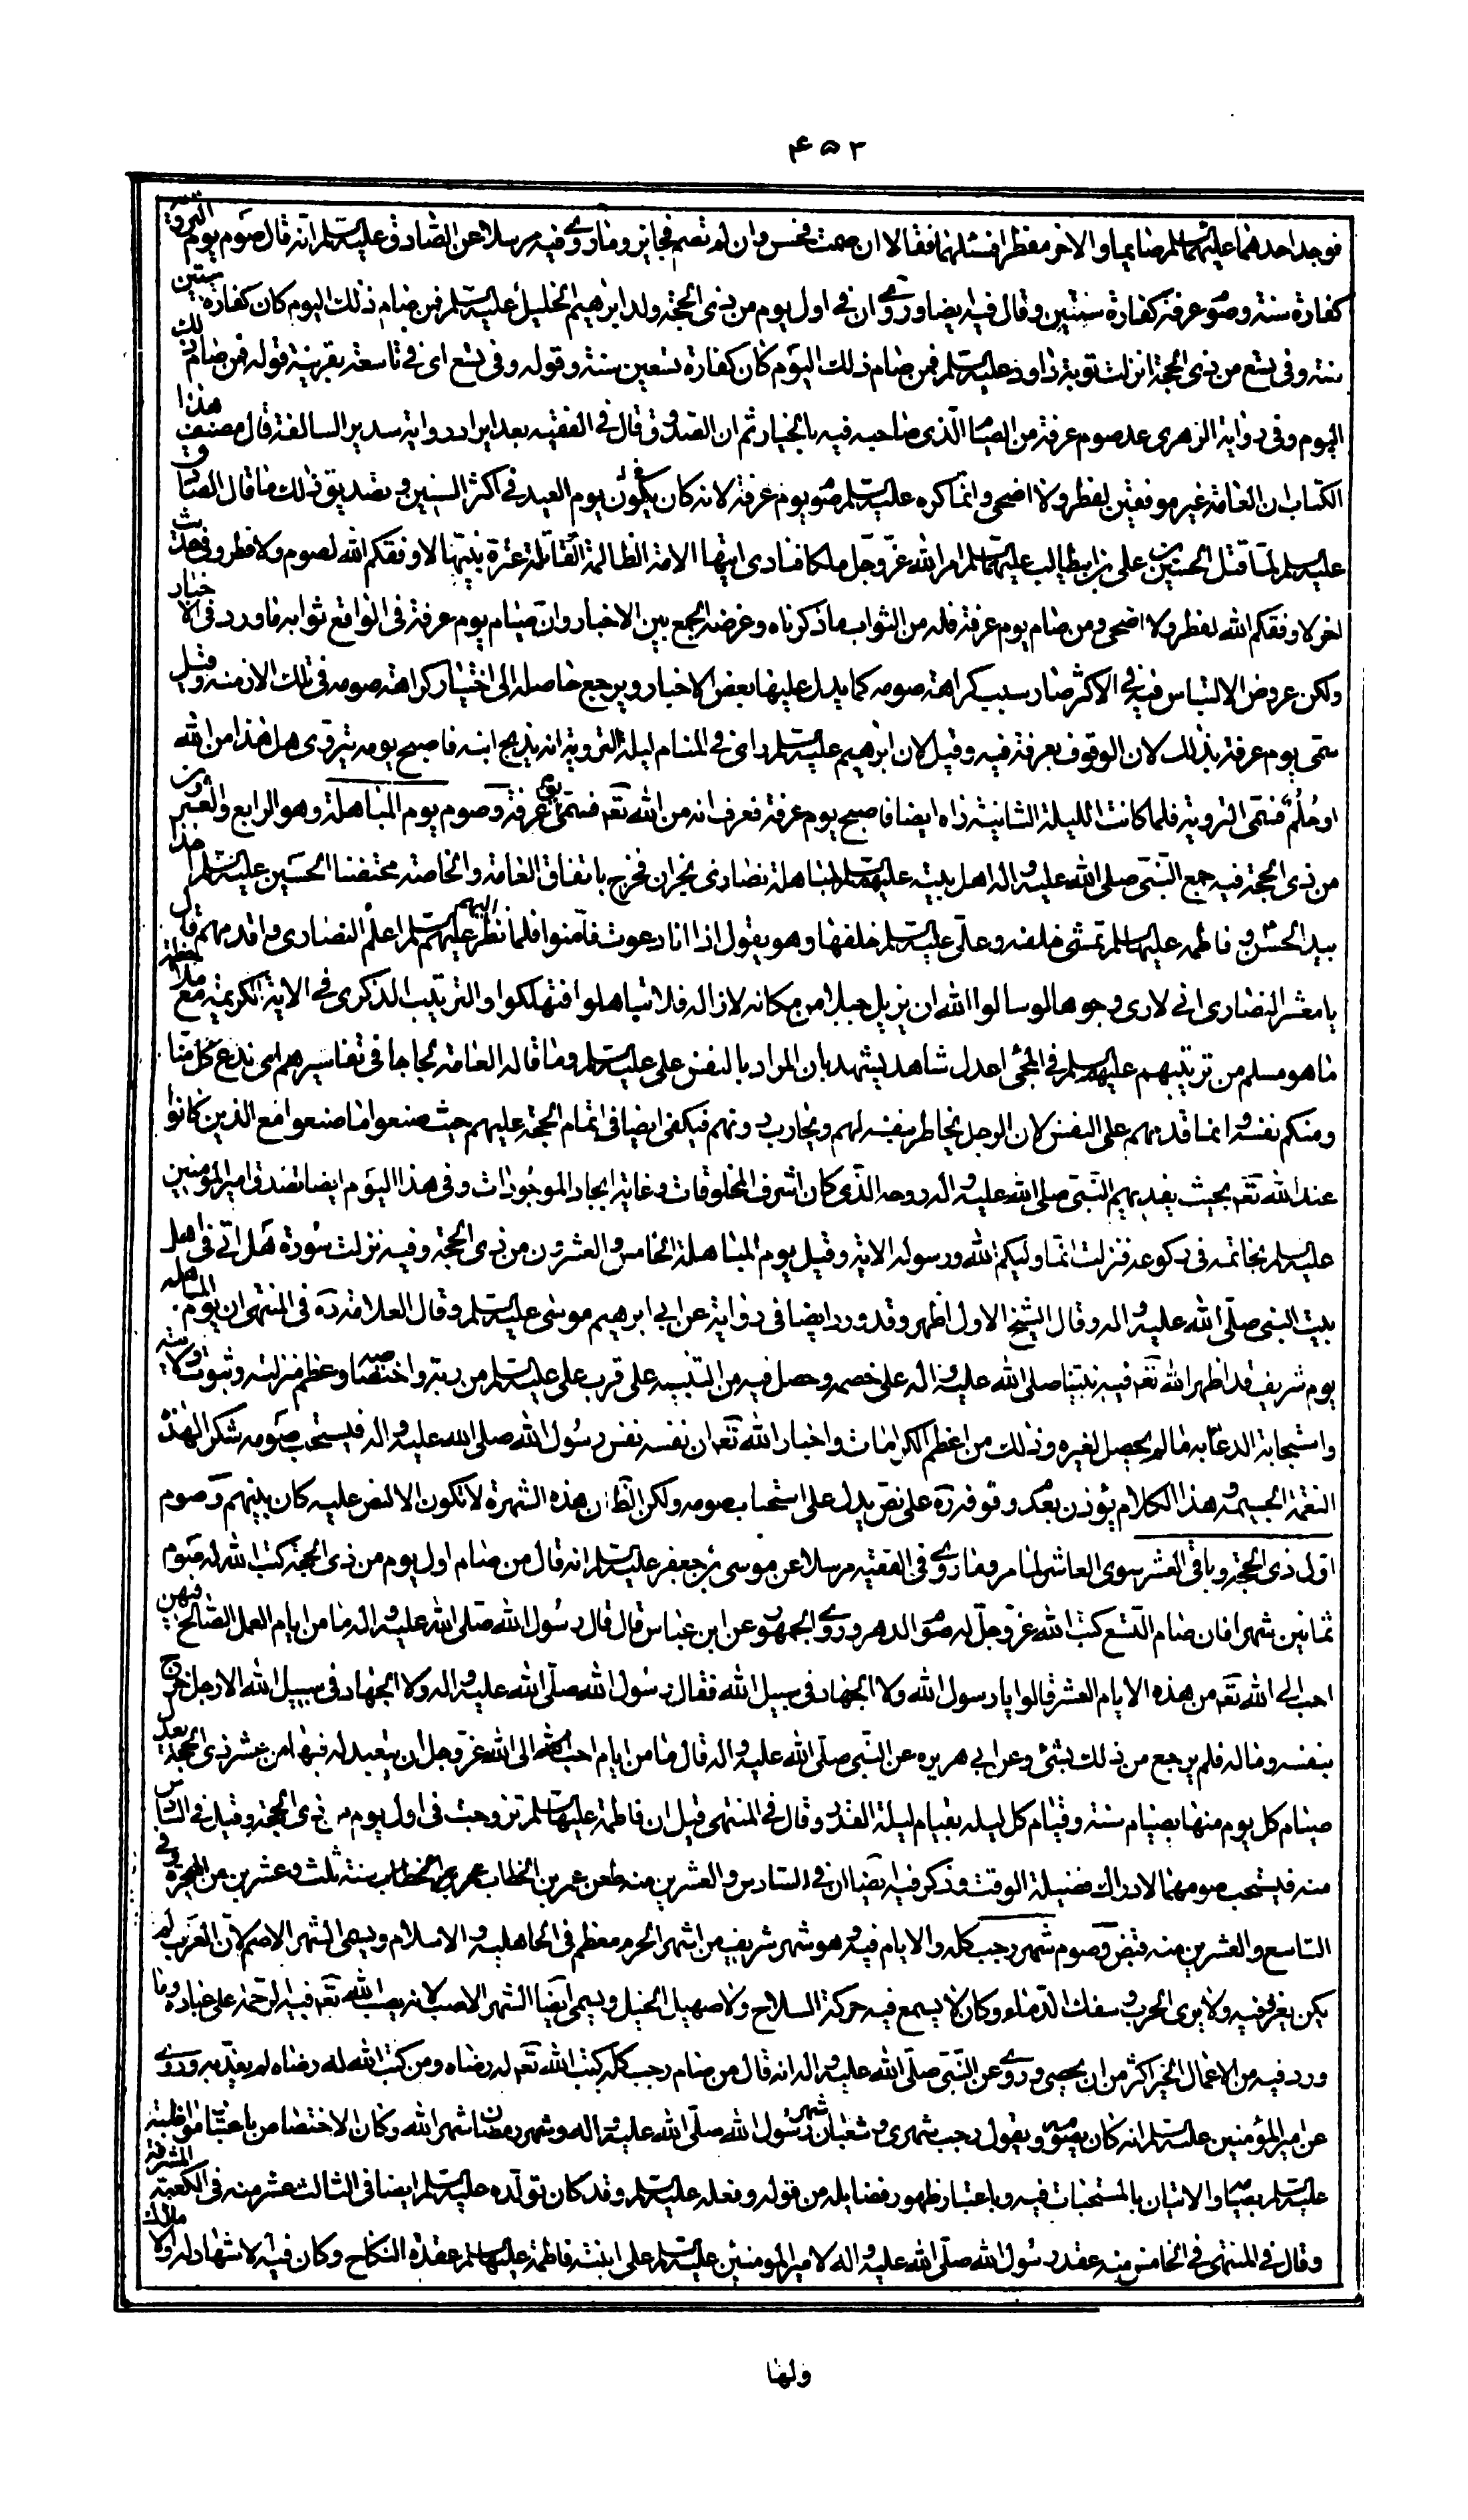 ٤٥٢
فوجد احدهما عليهما السلم صايما والاخر مفطرا فسئلهما فقالا ان صمت فحسن وان لم تصم فجايز وما روي فيه مرسلا عن الصادق عليه السلم انه قال صوم يوم التروية
كفارة سنة وصوم عرفة كفارة سنتين وقال فيه ايضا وروي ان في اول يوم من ذى الحجة ولد ابرهيم الخليل عليه السلم فمن صام ذلك اليوم كان كفارة ستين
سنة وفى تسع من ذى الحجة انزلت توبة داود عليه السلم فمن صام ذلك اليوم كان كفارة تسعين سنة وقوله وفى تسع اى فى تاسعه بقرينة قوله فمن صام ذلك
اليوم وفى رواية الزهرى عد صوم عرفة من الصيام الذى صاحبه فيه بالخيار ثم ان الصدوق قال فى الفقيه بعد ايراد رواية سدير السالفة قال مصنف هذا
الكتاب ان العامة غير موفقين لفطر ولا اضحى وانما كره عليه السلم صوم يوم عرفة لانه كان يكون يوم العيد فى اكثر السنين وتصديق ذلك ما قال الصادق
عليه السلم لما قتل الحسين بن على بن ابيطالب عليهما السلم امر الله عز وجل ملكا فنادى ايتها الامة الظالمة القاتلة عترة نبيها لا وفقكم الله لصوم ولا فطر وفى حديث
اخر لا وفقكم الله لفطر ولا اضحى ومن صام يوم عرفة فله من الثواب ما ذكرناه وغرضه الجمع بين الاخبار وان صيام يوم عرفة فى الواقع ثوابه ما ورد فى الاخبار
ولكن عروض الالتباس فيه في الاكثر صار سبب كراهة صومه كما يدل عليها بعض الاخبار ويرجع حاصله الى اختيار كراهة صومه فى تلك الازمنة وقيل
سمى يوم عرفة بذلك لان الوقوف بعرفة فيه وقيل لان ابرهيم عليه السلم راى في المنام ليلة التروية انه يذبح ابنه فاصبح يومه يتروى هل هذا من الله
او حلم فسمى التروية فلما كانت الليلة الثانية راه ايضا فاصبح يوم عرفة فعرف انه من الله تعه فسمى يوم عرفة وصوم يوم المباهلة وهو الرابع والعشرون
من ذى الحجة فيه جمع النبى صلى الله عليه واله اهل بيته عليهم السلم لمباهلة نصارى نجران فخرج باتفاق العامة والخاصة محتضنا الحسين عليه السلم اخذا
بيد الحسن وفاطمه عليهما السلم تمشى خلفه وعلى عليه السلم خلفها وهو يقول اذا انا دعوت فآمنوا فلما نظر اليهم عليهم السلم اعلم النصارى واقدمهم قال
يا معشر النصارى اني لارى وجوها لو سالوا الله ان يزيل جبلا من مكانه لازاله فلا تباهلوا فتهلكوا والترتيب الذكرى في الاية الكريمة مع ملاحظة
ما هو مسلم من ترتيبهم عليهم السلم في المجئ اعدل شاهد يشهد بان المراد بالنفس على عليه السلم وما قاله العامة لجاجا فى تفاسيرهم اى ندع كل منا
ومنكم نفسه وانما قدمهم على النفس لان الرجل يخاطر بنفسه لهم ويحارب دونهم فيكفى ايضا فى اتمام الحجة عليهم حيث صنعوا ما صنعوا مع الذين كانوا
عند الله تعه بحيث يفديهم النبى صلى الله عليه واله روحه الذى كان اشرف المخلوقات وغاية ايجاد الموجودات وفى هذا اليوم ايضا تصدق امير المؤمنين
عليه السلم بخاتمه فى ركوعه فنزلت انما وليكم الله ورسوله الاية وقيل يوم المباهلة الخامس والعشرون من ذى الحجة وفيه نزلت سورة هل اتى فى اهل
بيت النبى صلى الله عليه واله وقال الشيخ الاول اظهر وقد ورد ايضا فى رواية عن ابي ابرهيم موسى عليه السلم وقال العلامة ره فى المنتهى ان يوم المباهلة
يوم شريف قد اظهر الله تعه فيه نبينا صلى الله عليه واله على خصمه وحصل فيه من التنبيه على قرب على عليه السلم من ربه واختصاصه وعظم منزلته وثبوت ولايته
واستجابة الدعاء به ما لم يحصل لغيره وذلك من اعظم الكرامات واخبار الله تعه ان نفسه نفس رسول الله صلى الله عليه واله فيستحب صومه شكرا لهذه
النعمة الجسيمة وهذا الكلام يؤذن بعدم وقوفه ره على نص يدل على استحباب صومه ولكن الظ ان هذه الشهرة لا تكون الا لنص عليه كان بينهم وصوم
اول ذى الحجة وباقى العشر سوى العاشر لما مر وما روي فى الفقيه مرسلا عن موسى بن جعفر عليه السلم انه قال من صام اول يوم من ذى الحجة كتب الله له صوم
ثمانين شهرا فان صام التسع كتب الله عز وجل له صوم الدهر وروي الجمهور عن ابن عباس قال قال رسول الله صلى الله عليه واله ما من ايام العمل الصالح فيهن
احب الى الله تعه من هذه الايام العشر قالوا يا رسول الله ولا الجهاد فى سبيل الله فقال رسول الله صلى الله عليه واله ولا الجهاد فى سبيل الله الا رجل خرج
بنفسه وماله فلم يرجع من ذلك بشئ وعن ابي هريره عن النبى صلى الله عليه واله قال ما من ايام احب الى الله عز وجل ان يتعبد له فيها من عشر ذى الحجة يعدل
صيام كل يوم منها بصيام سنة وقيام كل ليله بقيام ليلة القدر وقال في المنتهى قيل ان فاطمة عليها السلم تزوجت فى اول يوم من ذى الحجة وقيل في السادس
منه فيستحب صومهما لادراك فضيلة الوقت وذكر فيه ايضا ان في السادس والعشرين منه طعن عمر بن الخطاب سنة ثلث وعشرين من الهجرة وفى
التاسع والعشرين منه قبض وصوم شهر رجب كله والايام فيه وهو شهر شريف من اشهر الحرم معظم فى الجاهلية والاسلام ويسمى الشهر الاصم لان العرب لم
يكن يغير فيه ولا يرى الحرب وسفك الدماء وكان لا يسمع فيه حركة السلاح ولا صهيل الخيل ويسمى ايضا الشهر الاصب لانه يصب الله تعه فيه الرحمة على عباده وما
ورد فيه من الاعمال الخير اكثر من ان يحصى وروي عن النبى صلى الله عليه واله انه قال من صام رجب كله كتب الله تعه له رضاه ومن كتب الله له رضاه لم يعذبه وروي
عن امير المؤمنين عليه السلم انه كان يصومه ويقول رجب شهرى وشعبان شهر رسول الله صلى الله عليه واله وشهر رمضان شهر الله وكان الاختصاص باعتبار مواظبته
عليه السلم بصيامه والاتيان بالمستحبات فيه وباعتبار ظهور فضايله من قوله وفعله عليه السلم وقد كان تولده عليه السلم ايضا فى الثالث عشر منه فى الكعبة المشرفة
وقال فى المنتهى في الخامس منه عقد رسول الله صلى الله عليه واله لامير المومنين عليه السلم على ابنته فاطمة عليها السلم عقدة النكاح وكان فيه الاشهاد له والاملاك
ولها